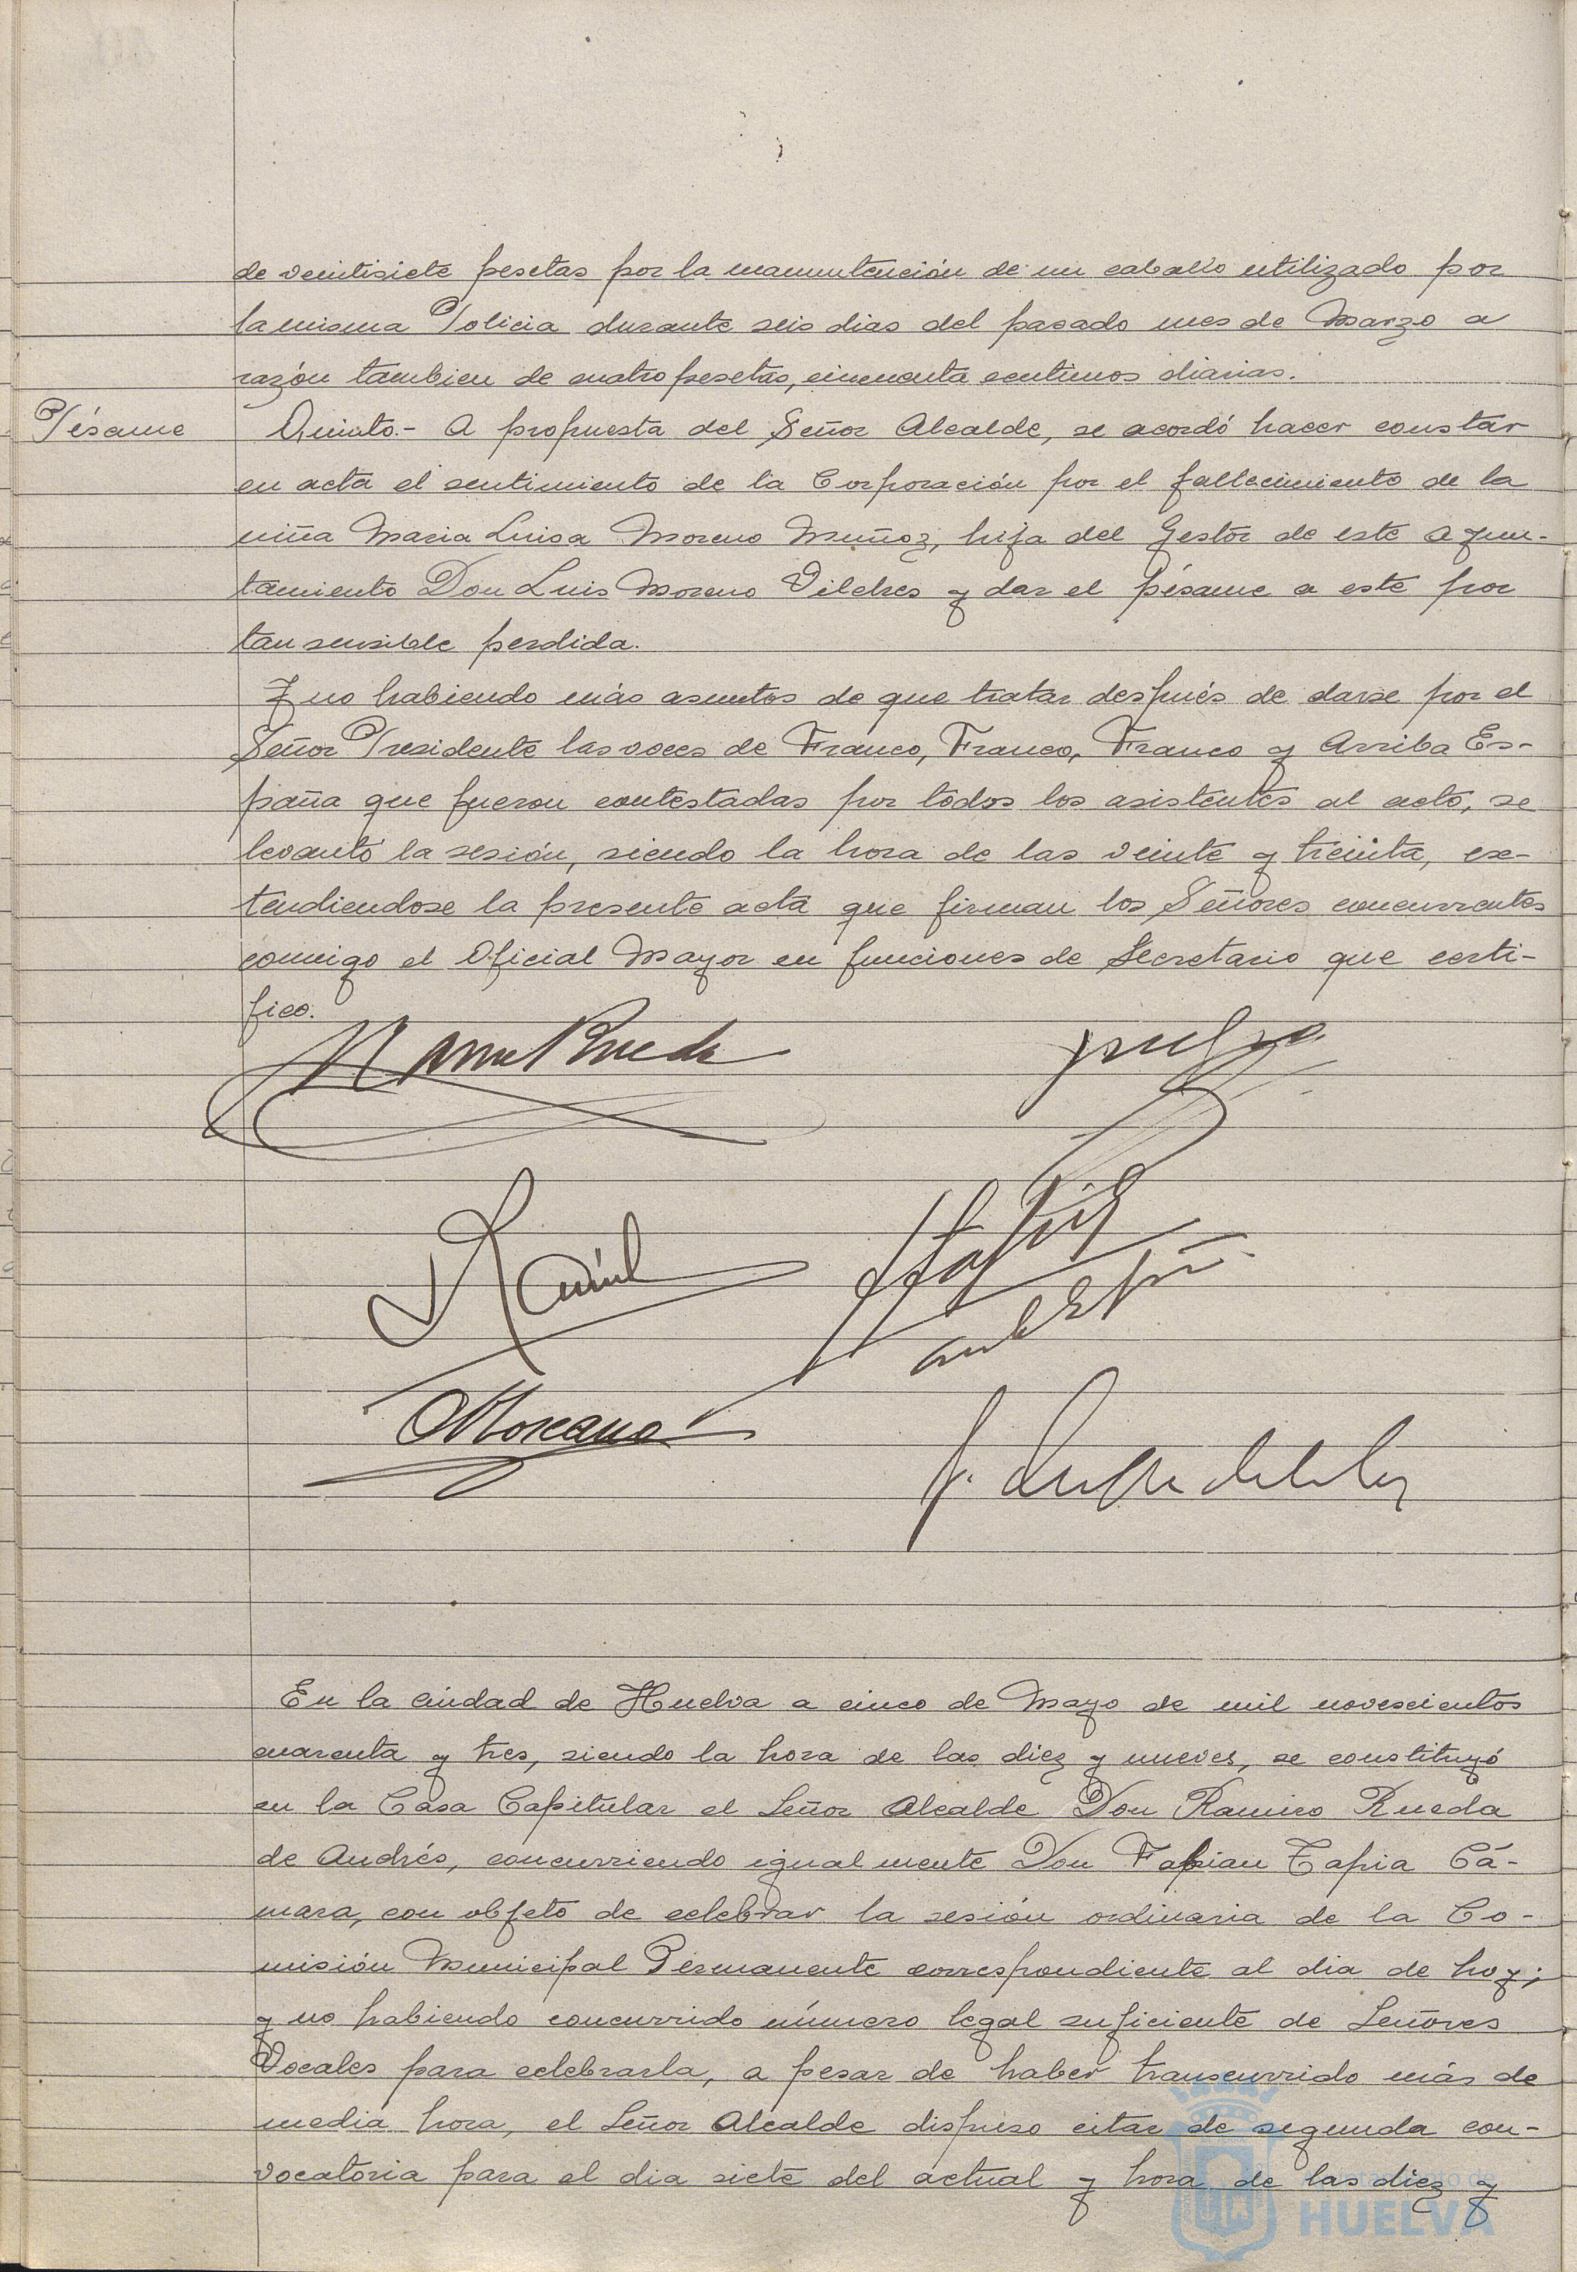 de veintisiete pesetas por la manutención de un caballo utilizado por
la misma Policia durante seis dias del pasado mes de Marzo a
razón tambien de cuatro pesetas, cincuenta centimos diarias.
Pésame
Quinto.- A propuesta del Señor Alcalde, se acordó hacer constar
en acta el sentimiento de la Corporación por el fallecimiento de la
niña Maria Luisa Moreno Muñoz, hija del Gestor de este Ayun-
tamiento Don Luis Moreno Vilches y dar el pésame a este por
tan sensible perdida.
Y no habiendo más asuntos de que tratar después de darse por el
Señor Presidente las voces de Franco, Franco, Franco y Arriba Es-
paña que fueron contestadas por todos los asistentes al acto, se
levantó la sesión, siendo la hora de las veinte y treinta, ex-
tendiendose la presente acta que firman los Señores concurrentes
conmigo el Oficial Mayor en funciones de Secretario que certi-
fico.
En la ciudad de Huelva a cinco de Mayo de mil novescientos
cuarenta y tres, siendo la hora de las diez y nueves, se constituyó
en la Casa Capitular el Señor Alcalde Don Ramiro Rueda
de Andrés, concurriendo igualmente Don Fabian Tapia Cá-
mara, con objeto de celebrar la sesión ordinaria de la Co-
misión Municipal Permanente correspondiente al dia de hoy;
y no habiendo concurrido número legal suficiente de Señores
Vocales para celebrarla, a pesar de haber transcurrido más de
media hora, el Señor Alcalde dispuso citar de segunda con-
vocatoria para el dia siete del actual y hora de las diez y
Ayuntamiento de
HUELVA